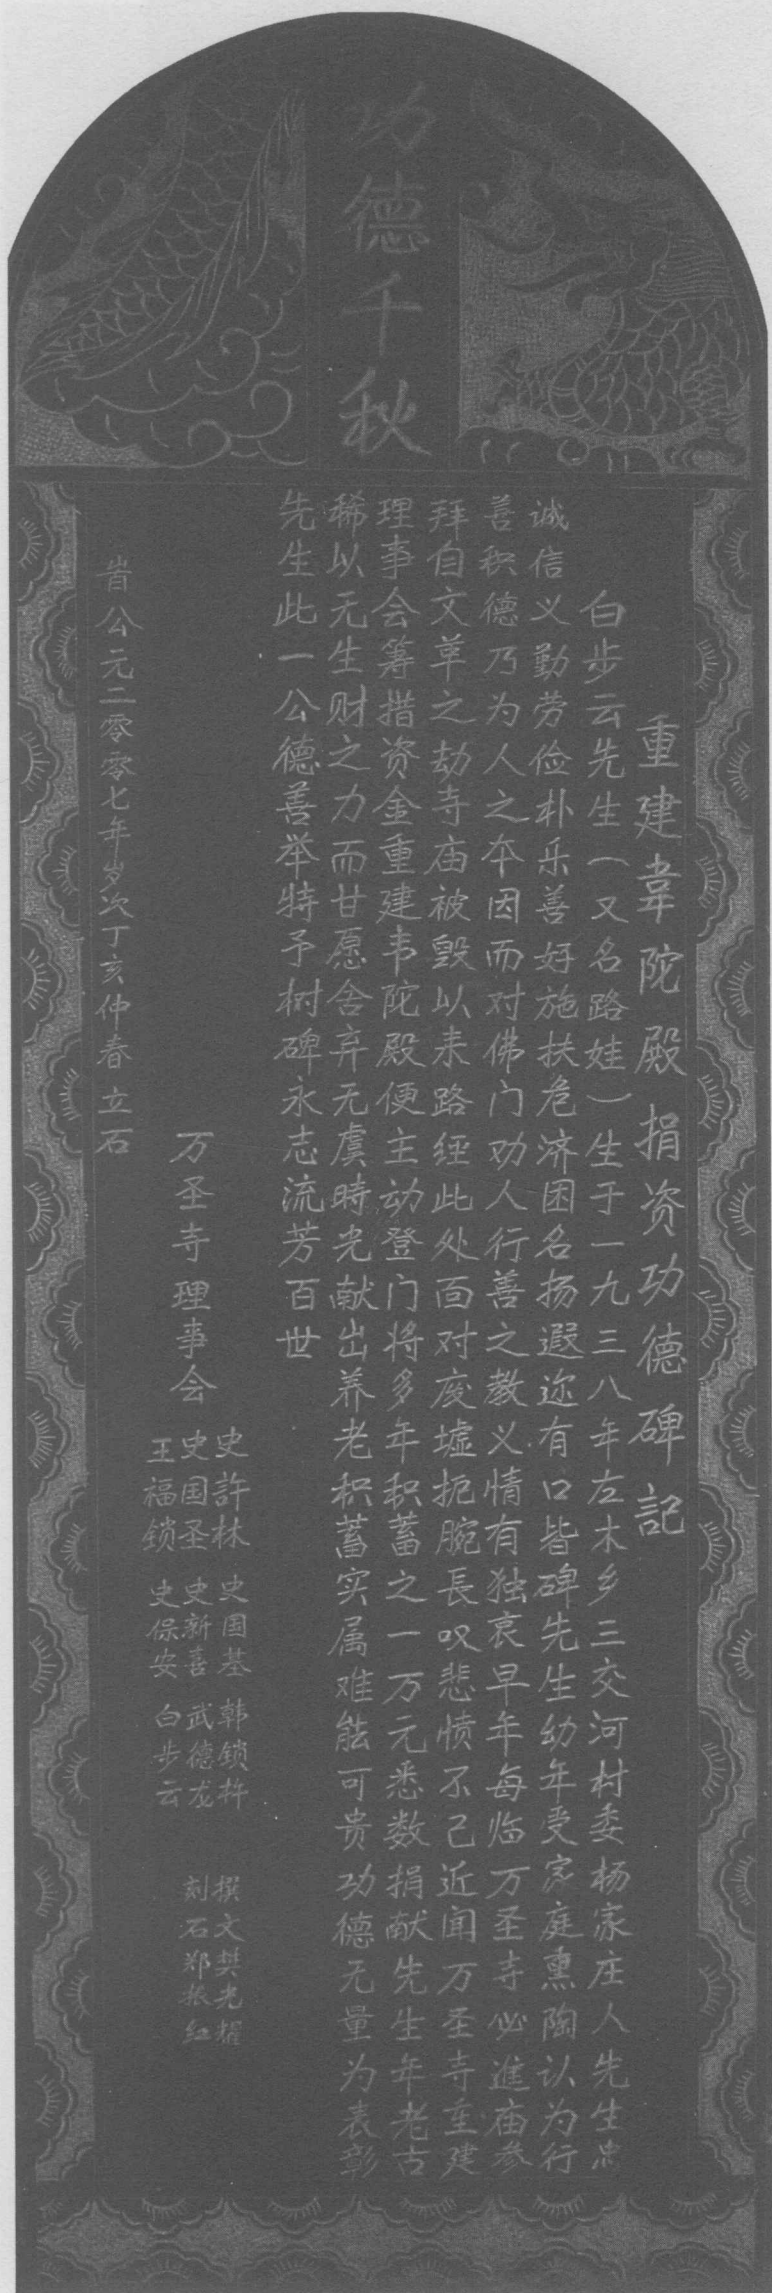 功德千秋
重建韋陀殿捐资功德碑記
白步云先生（又名路娃）生于一九三八年左木乡三交河村委杨家庄人先生忠
诚信义勤劳俭朴乐善好施扶危济困名扬遐迩有口皆碑先生幼年受家庭熏陶认为行
善积德乃为人之本因而对佛门劝人行善之教义情有独衷早年每临万圣寺必進庙参
拜自文革之劫寺庙被毁以来路经此处面对废墟扼腕長叹悲愤不已近闻万圣寺重建
理事会筹措资金重建韦陀殿便主动登门将多年积蓄之一万元悉数捐献先生年老古
稀以无生财之力而甘愿舍弃无虞時光献出养老积蓄实属难能可贵功德无量为表彰
先生此一公德善举特予树碑永志流芳百世
万圣寺理事会
史許林 史国基 韩锁杵
史国圣 史新喜 武德龙
王福锁 史保安 白步云
撰文樊光耀
刻石郑振红
旹公元二零零七年岁次丁亥仲春立石